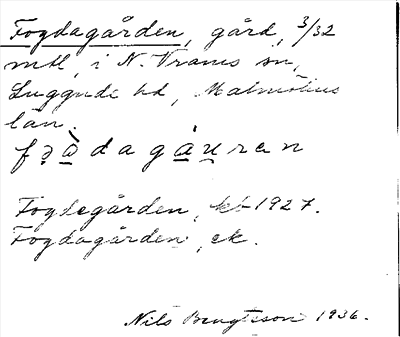 Fogdagården, gård, 3/32
mtl, i N. Vrams sn,
Luggude hd, Malmöhus
län.
Fogdegården, kb 1927.
Fogdagården, ek.
Nils Bengtsson 1936.